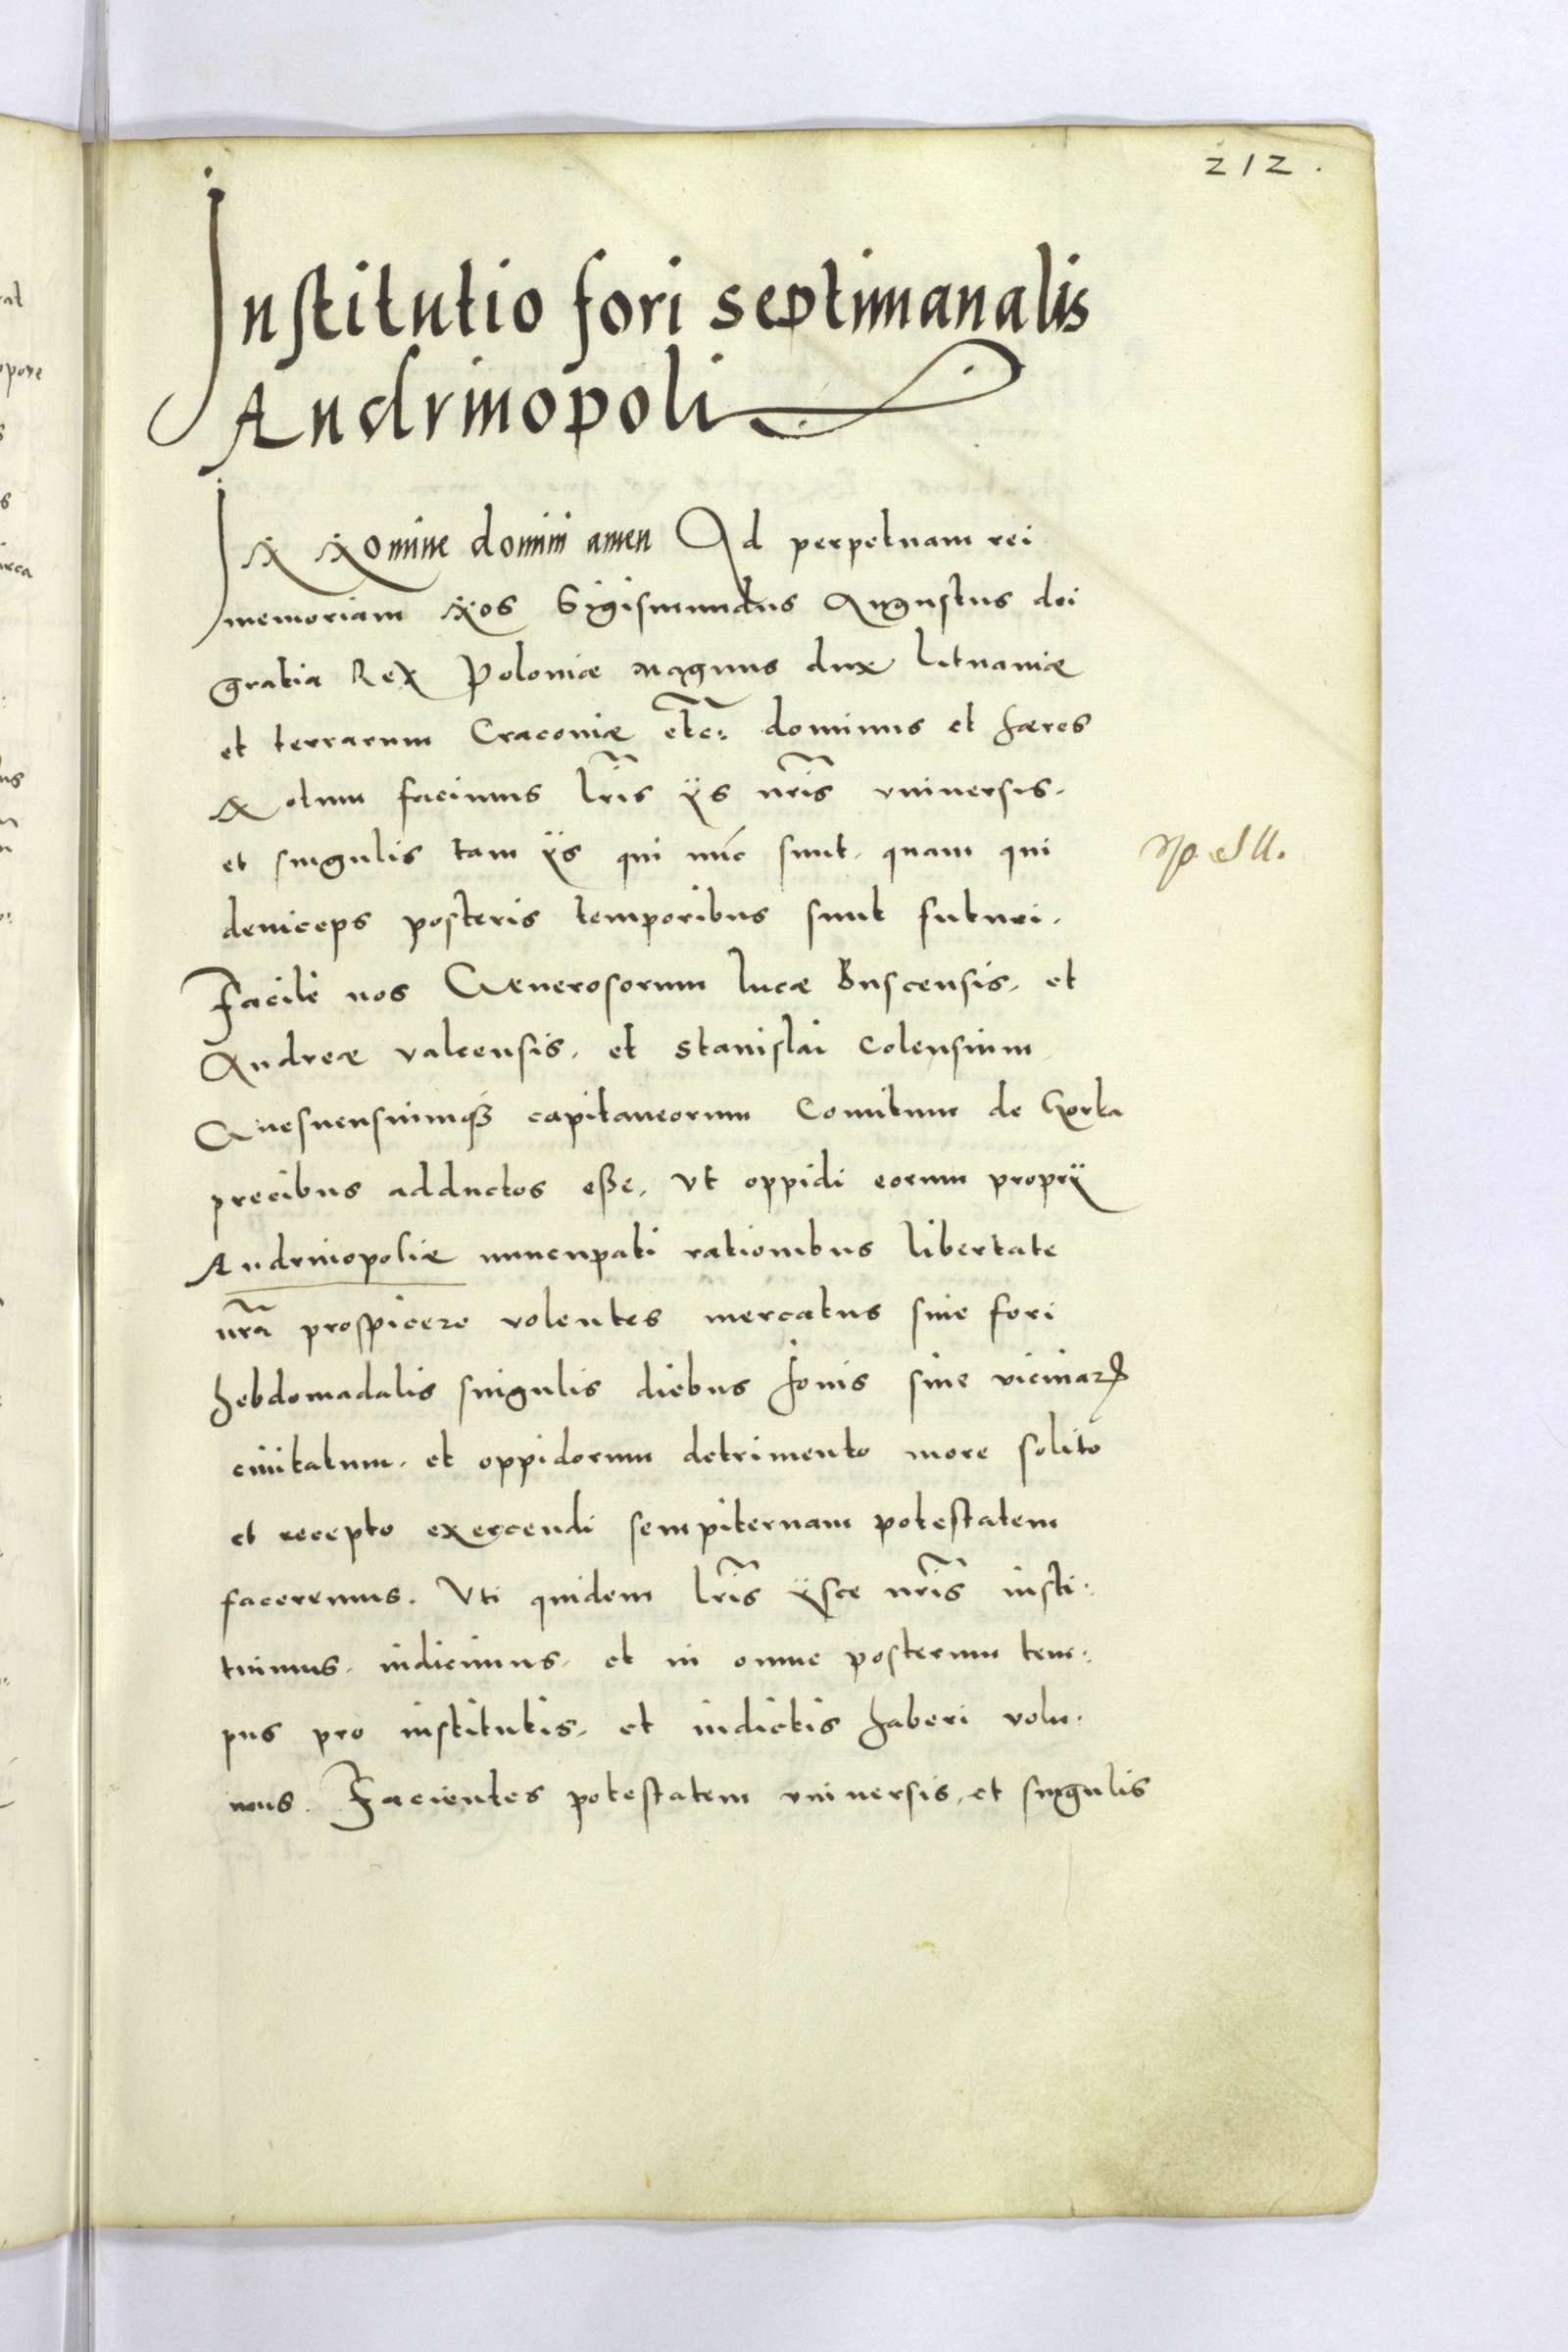 212.
Institutio fori septimanalis
Andrinopoli
IN Nomine domini amen Ad perpetuam rei
memoriam Nos Sigismundus Augustus dei
gratia Rex Poloniæ Magnus dux Lituaniæ
et terrarum Cracoviæ etc: dominus et hæres
Notum facimus lris ÿs nris universis.
et singulis tam ÿs qui nunc sunt, quam qui
deinceps posteris temporibus sunt futuri.
Facile nos Generosorum Lucæ Buscensis, et
Andreæ Valcensis, et Stanislai Colensium
Gnesnensiumq3 capitaneorum Comitum de Gorka
precibus adductos esse, Vt oppidi eorum proprÿ
Andrinopoliæ nuncupati rationibus libertate
nra prospicere volentes mercatus sive fori
hebdomadalis singulis diebus Jovis sine viciniarꝝ
civitatum, et oppidorum detrimento more solito
et recepto exercendi sempiternam potestatem
faceremus. Vti quidem lris ÿsce nris insti:
tuimus, indicimus, et in omne posterum tem:
pus pro institutis, et indictis haberi volu:
mus. Facientes potestatem universis, et singulis